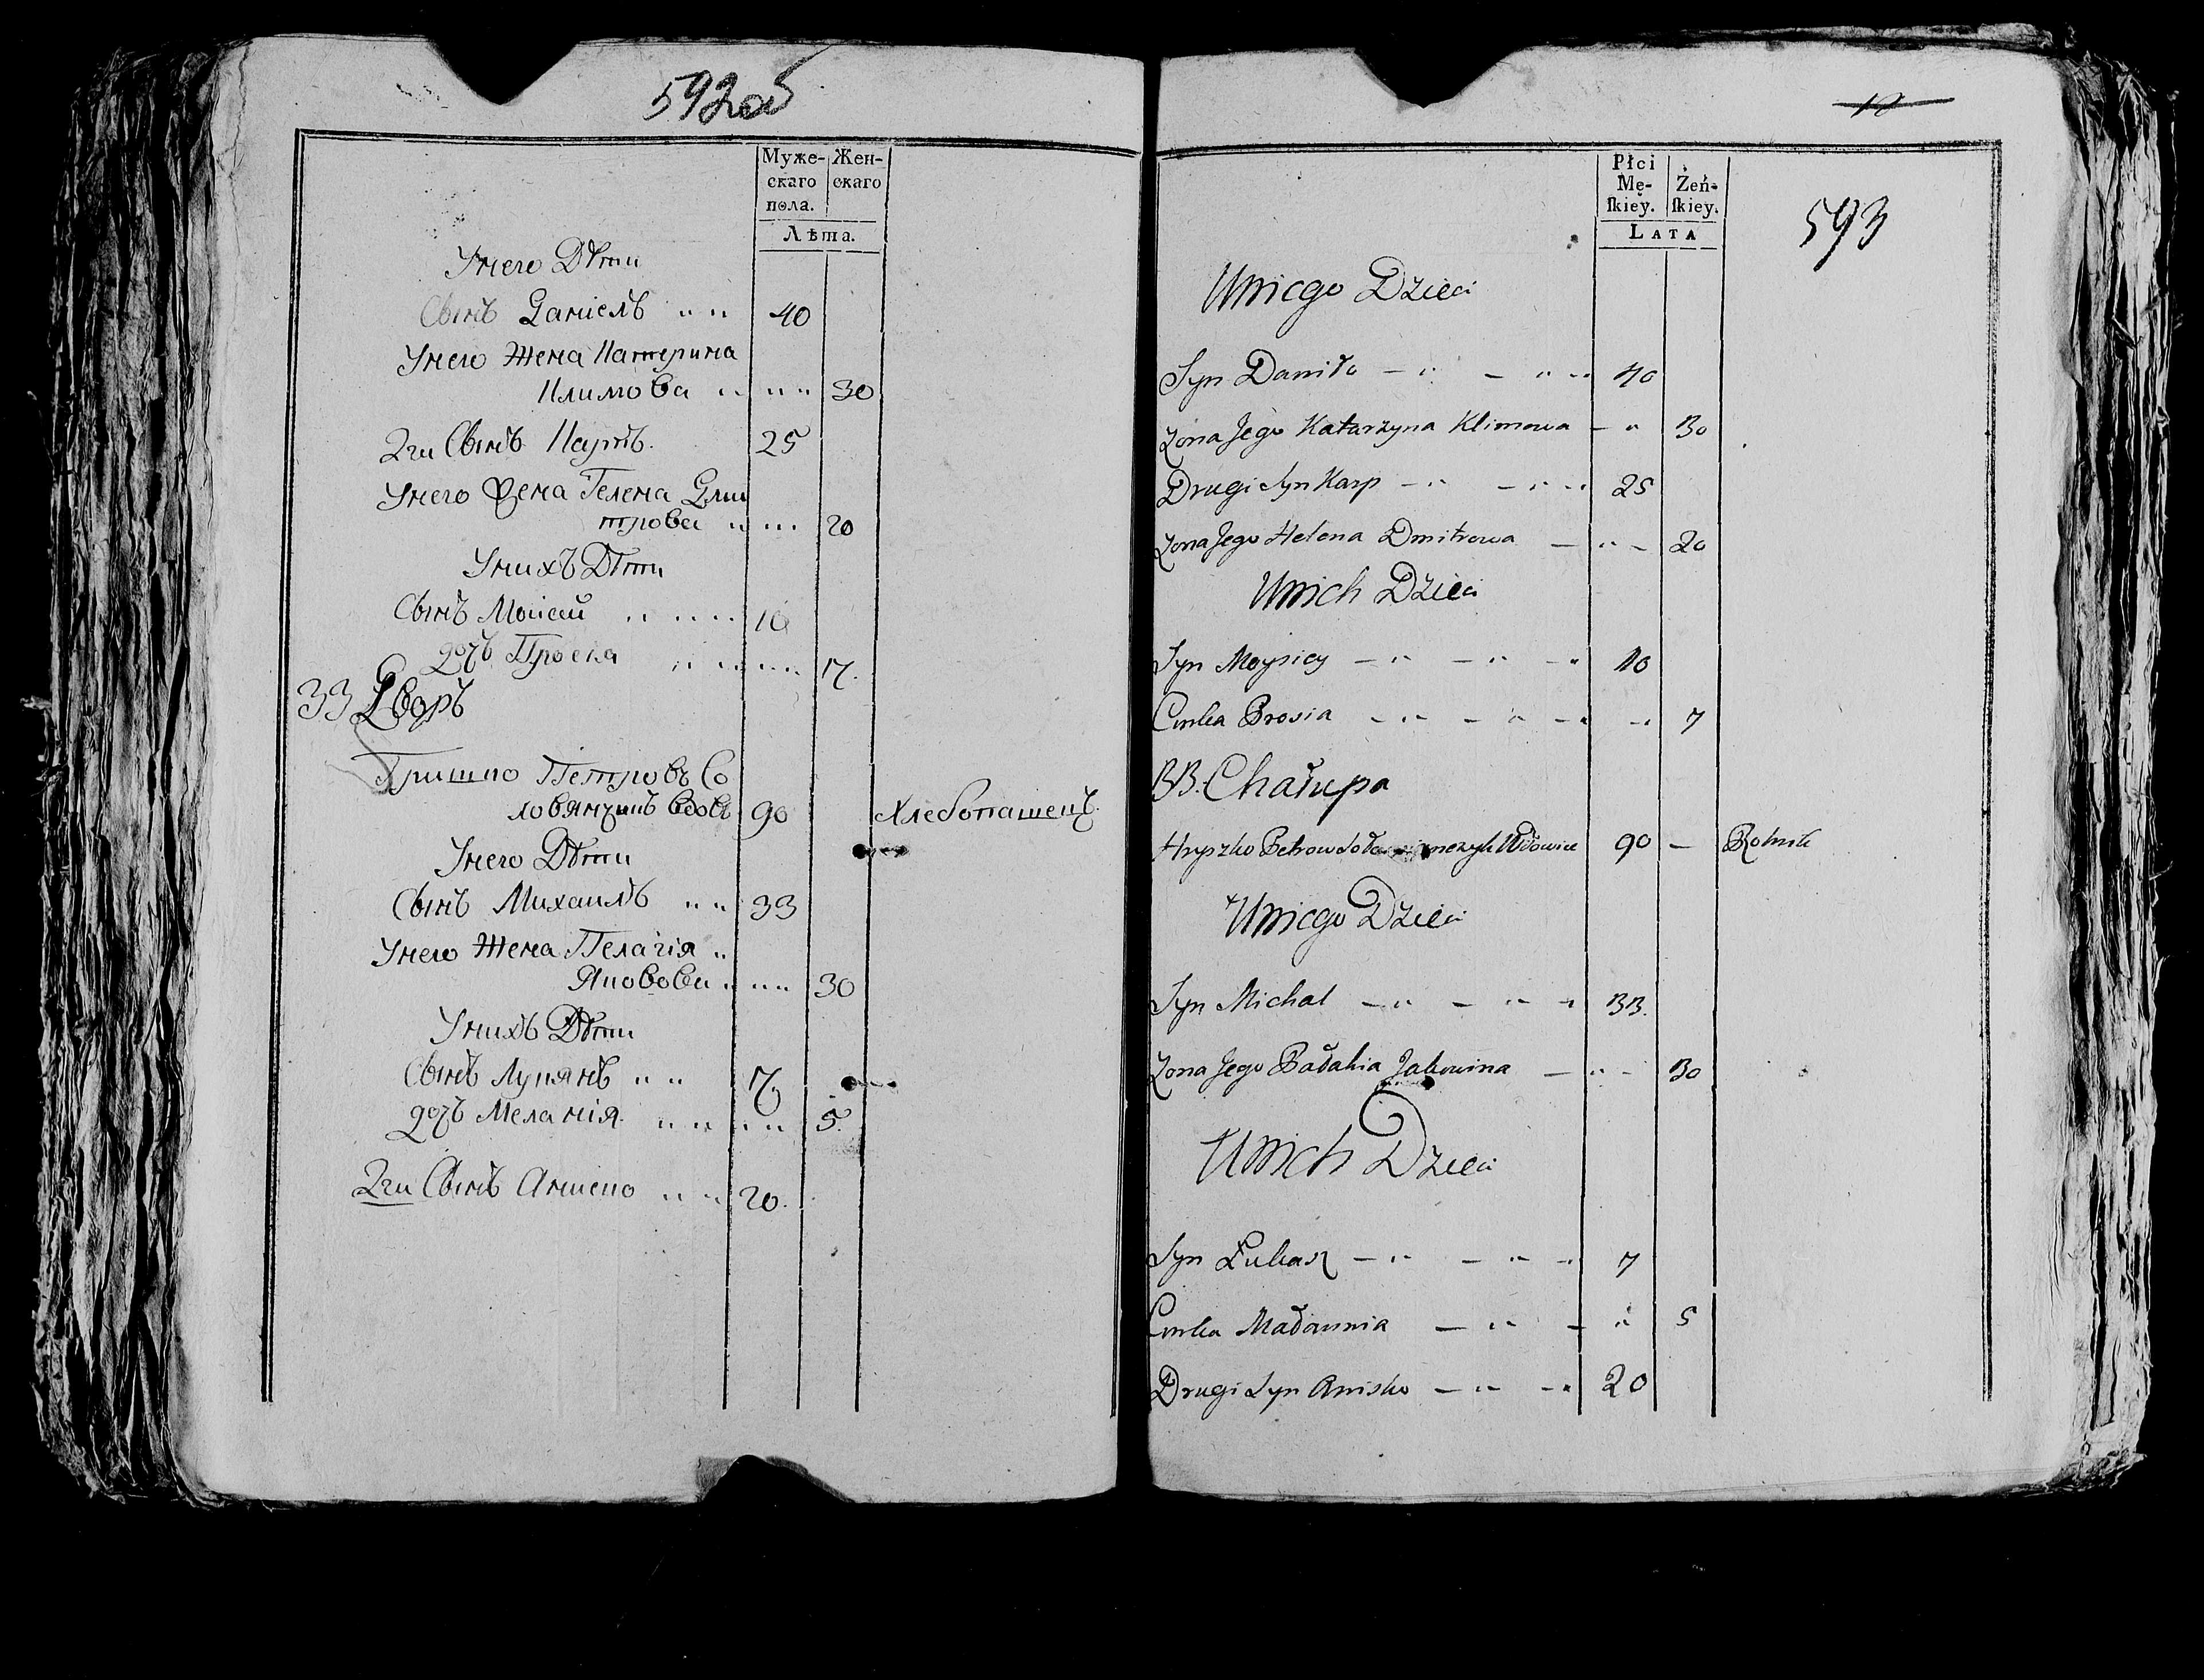 592об
Муже-
скаго
пола.
Жен-
скаго
Лѣта.
Унего Дѣти
Сынъ Даніелъ " " 40
Унего Жена Катерина
Климова " " " 30
2ги Сынъ Карпъ. 25
Унего Жена Гелена Дми
трова " " " 20
Унихъ Дѣти
Сынъ Мойсей " " " " 10
дочь Проска " " " " 7.
33 Дворъ
Гришко Петровъ Со
ловянчикъ вдовъ 90 Хлебопашецъ.
Унего Дѣти
Сынъ Михаилъ " " 33
Унего Жена Пелагія "
Яковова " " " 30
Унихъ Дѣти
Сынъ Лукянъ " " 7
дочь Меланія. " " " " 5.
2ги Сынъ Аниско " " 20.
10
593
Płci
Mę-
ſkiey.
Żeń-
ſkiey.
LATA
Uniego Dzieci
Syn Daniło - " - " " 40
Zona Jego Katarzyna Klimowa - " 30
Drugi Syn Karp - " - " " 25
Zona Jego Helena Dmitrowa - " - 20
Unich Dzieci
Syn Moysiey - " - " - " 10
Curka Prosia - " - " - " " 7
33. Chałupa
Hryszko Petrow Wdowiec 90 - Rolnik
Uniego Dzieci
Syn Michał - " - " " 33.
Zona Jego Pałahia Jakowina - " - 30
Unich Dzieci
Syn Łukasz - " - " " 7
Curka Małannia - " - " 5
Drugi Syn Anisko - " - " 20